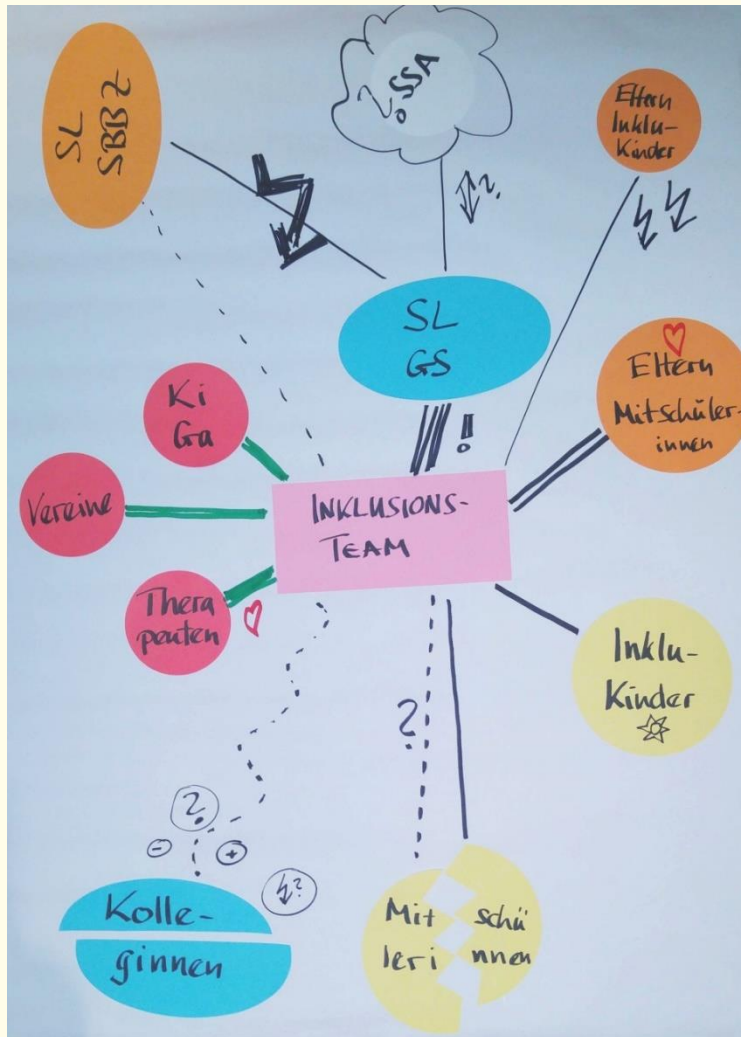 SL
SBBZ
?
SSA
Eltern
Inklu-
Kinder
?
SL
GS
Eltern
Mitschüler-
innen
Ki
Ga
!
Vereine
INKLUSIONS-
TEAM
Thera
peuten
Inklu-
Kinder
?
?
-
+
?
Kolle-
ginnen
Mit schü
leri nnen